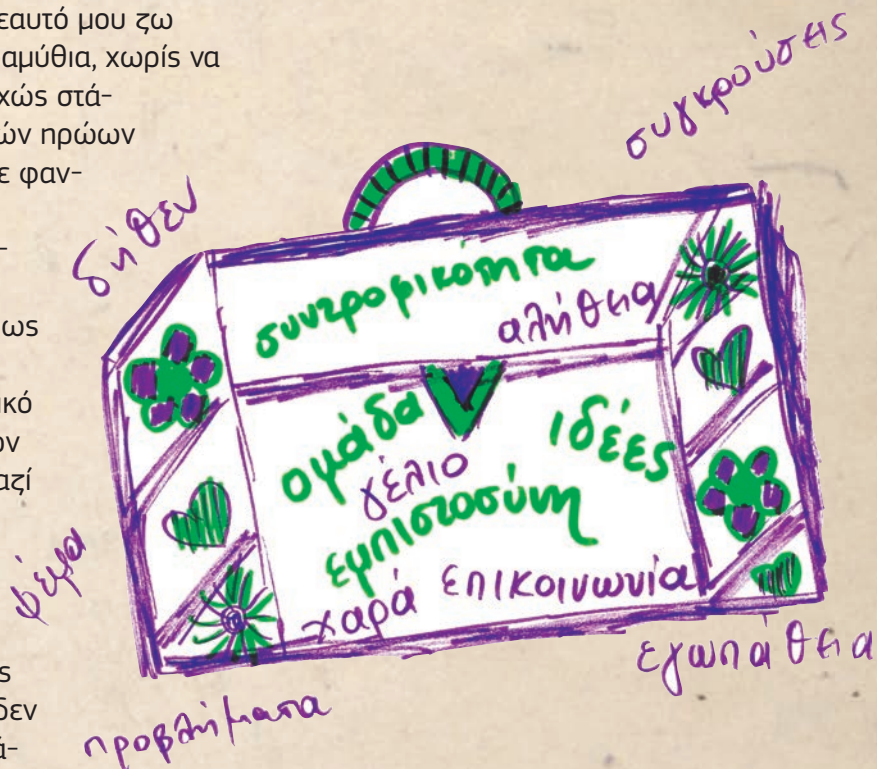 εαυτό μου ζω
αμύθια, χωρίς να
χώς στά-
ών ηρώων
ε φαν-
-
ως
ικό
ον
αζί
ς
δεν
ά-
συγκρούσεις
δήθεν
συντροφικότητα
αλήθεια
ομάδα
ιδέες
γέλιο
εμπιστοσύνη
χαρά επικοινωνία
ψέμα
εγωπάθεια
προβλήματα